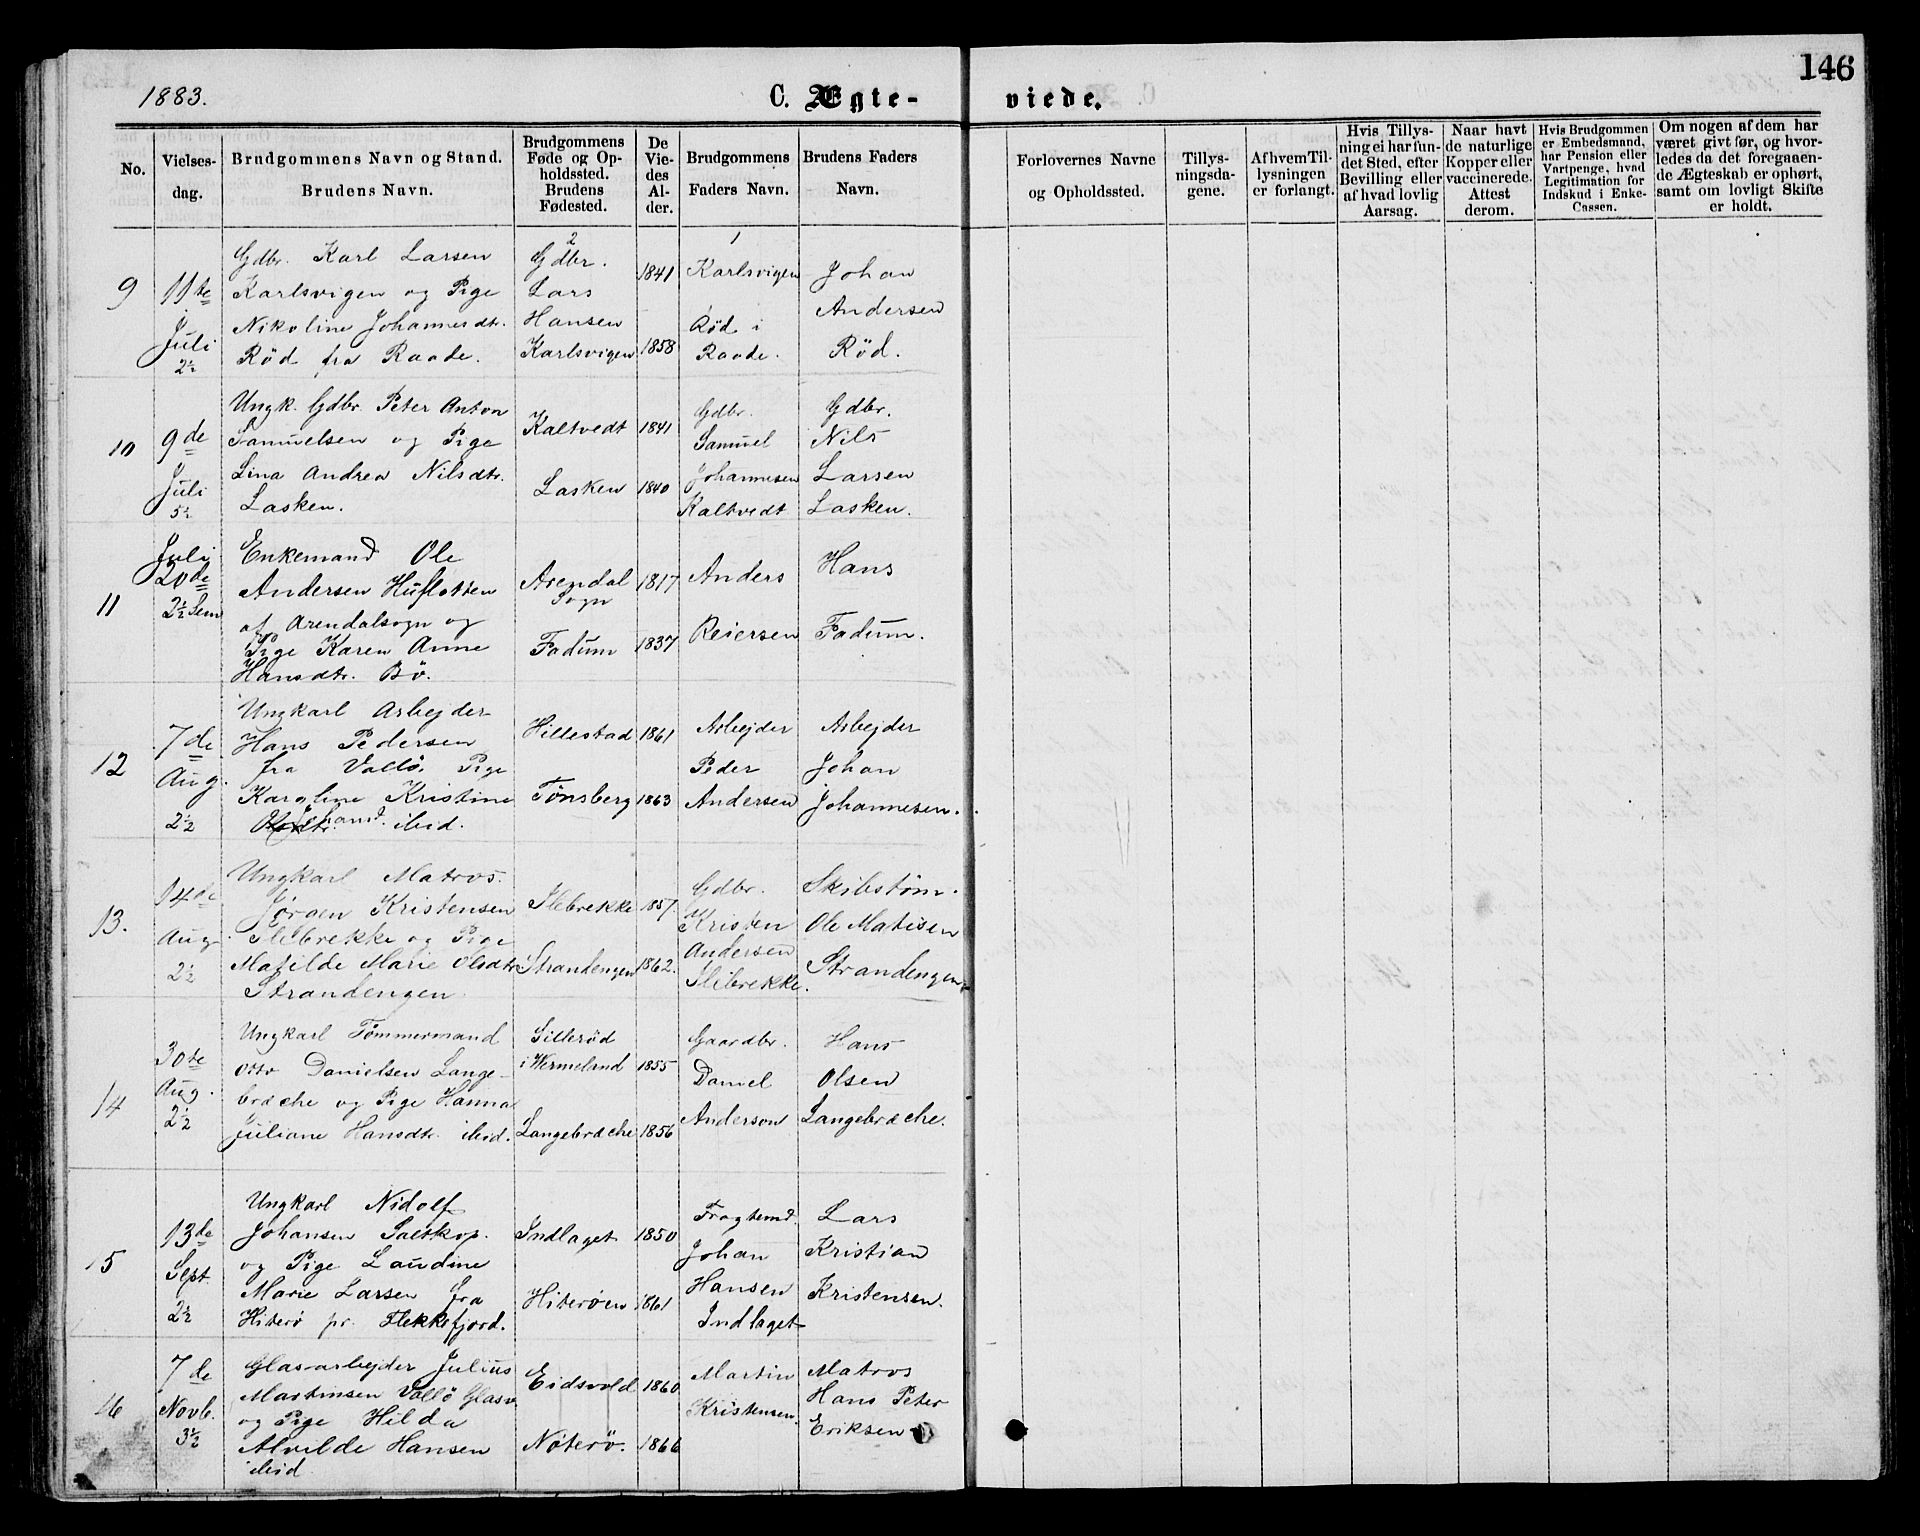 146
1883.
C. Ægte-
viede.
No.
Vielses-
dag.
Brudgommens Navn og Stand.
Brudens Navn.
Brudgommens
Føde og Op-
holdssted.
Brudens
Fødested.
De
Vie-
des
Al-
der.
Brudgommens
Faders Navn.
Brudens Faders
Navn.
Forlovernes Navne
og Opholdssted.
Tillys-
ningsda-
gene.
Af hvem Til-
lysningen
er forlangt.
Hvis Tillys-
ning ei har fun-
det Sted, efter
Bevilling eller
af hvad lovlig
Aarsag.
Naar havt
de naturlige
Kopper eller
vaccinerede.
Attest
derom.
Hvis Brudgommen
er Embedsmand,
har Pension eller
Vartpenge, hvad
Legitimation for
Indskud i Enke-
Cassen.
Om nogen af dem har
været givt før, og hvor-
ledes da det foregaaen-
de Ægteskab er ophørt,
samt om lovligt Skifte
er holdt.
9
11te
Juli
2½
Gdbr. Karl Larsen
Karlsvigen og Pige
Nikoline Johannesdtr.
Rød fra Raade.
2
Gdbr.
Lars
Hansen
Karlsvigen
1841
1858
1
Karlsvigen
Rød i
Raade.
Johan
Andersen
Rød.
10
9de
Juli
5½
Ungk. Gdbr. Peter Anton
Samuelsen og Pige
Lina Andrea Nilsdtr.
Lasken.
Kaltvedt
Lasken
1841
1840
Gdbr.
Samuel
Johannesen
Kaltvedt
Gdbr.
Nils
Larsen
Lasken.
11
Juli
20de
2½ Sem
Enkemand Ole
Andersen Huflotten
af Arendalsogn og
Pige Karen Anne
Hansdtr. Bö.
Arendal
Sogn
Fadum
1817
1837
Anders
Reiersen
Hans
Fadum.
12
7de
Aug.
2½
Ungkarl Arbejder
Hans Pedersen
fra Vallö. Pige
Karoline Kristine
Johansd. ibid.
Hillestad
Tönsberg
1861
1863
Arbejder
Peder
Andersen
Arbejder
Johan
Johannesen.
13.
14de
Aug.
2½
Ungkarl Matros.
Jørgen Kristensen
Ilebrekke og Pige
Matilde Marie Olsdtr
Strandengen.
Ilebrekke
Strandengen
1857.
1862.
Gdbr.
Kristen
Andersen
Ilebrekke.
Skibstøm.
Ole Matisen
Strandengen
14
30te
Aug.
2½
Ungkarl Tømmermand
Otto Danielsen Lange-
bræche og Pige Hanna
Juliane Hansdtr. ibid.
Sillerød
i Wermeland
Langebræche
1855
1856
Gaardbr.
Daniel
Anderson
Hans
Olsen
Langebræche.
15
13de
Sept.
2½
Ungkarl Nidolf
Johansen Saltkop.
og Pige Laudine
Marie Larsen fra
Hiterø pr. Flekkefjord.
Indlaget
Hiterøen
1850
1861
Fragtemd.
Johan
Hansen
Indlaget
Lars
Kristian
Kristensen.
16
7de
Novb.
3½
Glasarbejder Julius
Martinsen Vallö Glasv.
og Pige Hilda
Alvilde Hansen
ibid.
Eidsvold
Nøterø.
1860
1866
Martin
Kristensen.
Matros
Hans Peter
Eriksen